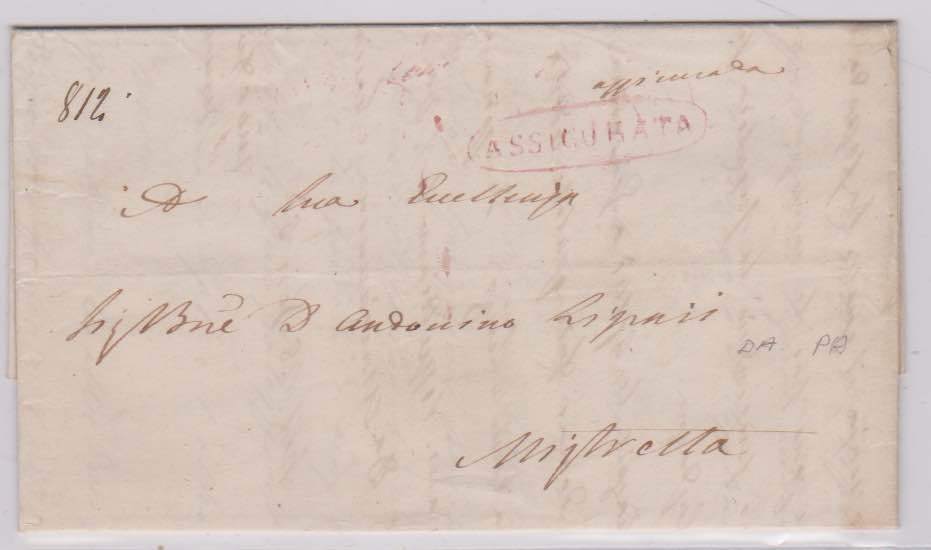 812.
assicurata
ASSICURATA
A Sua Eccellenza
Sig Bne D Andonino Lipari
DA PA
Mistretta